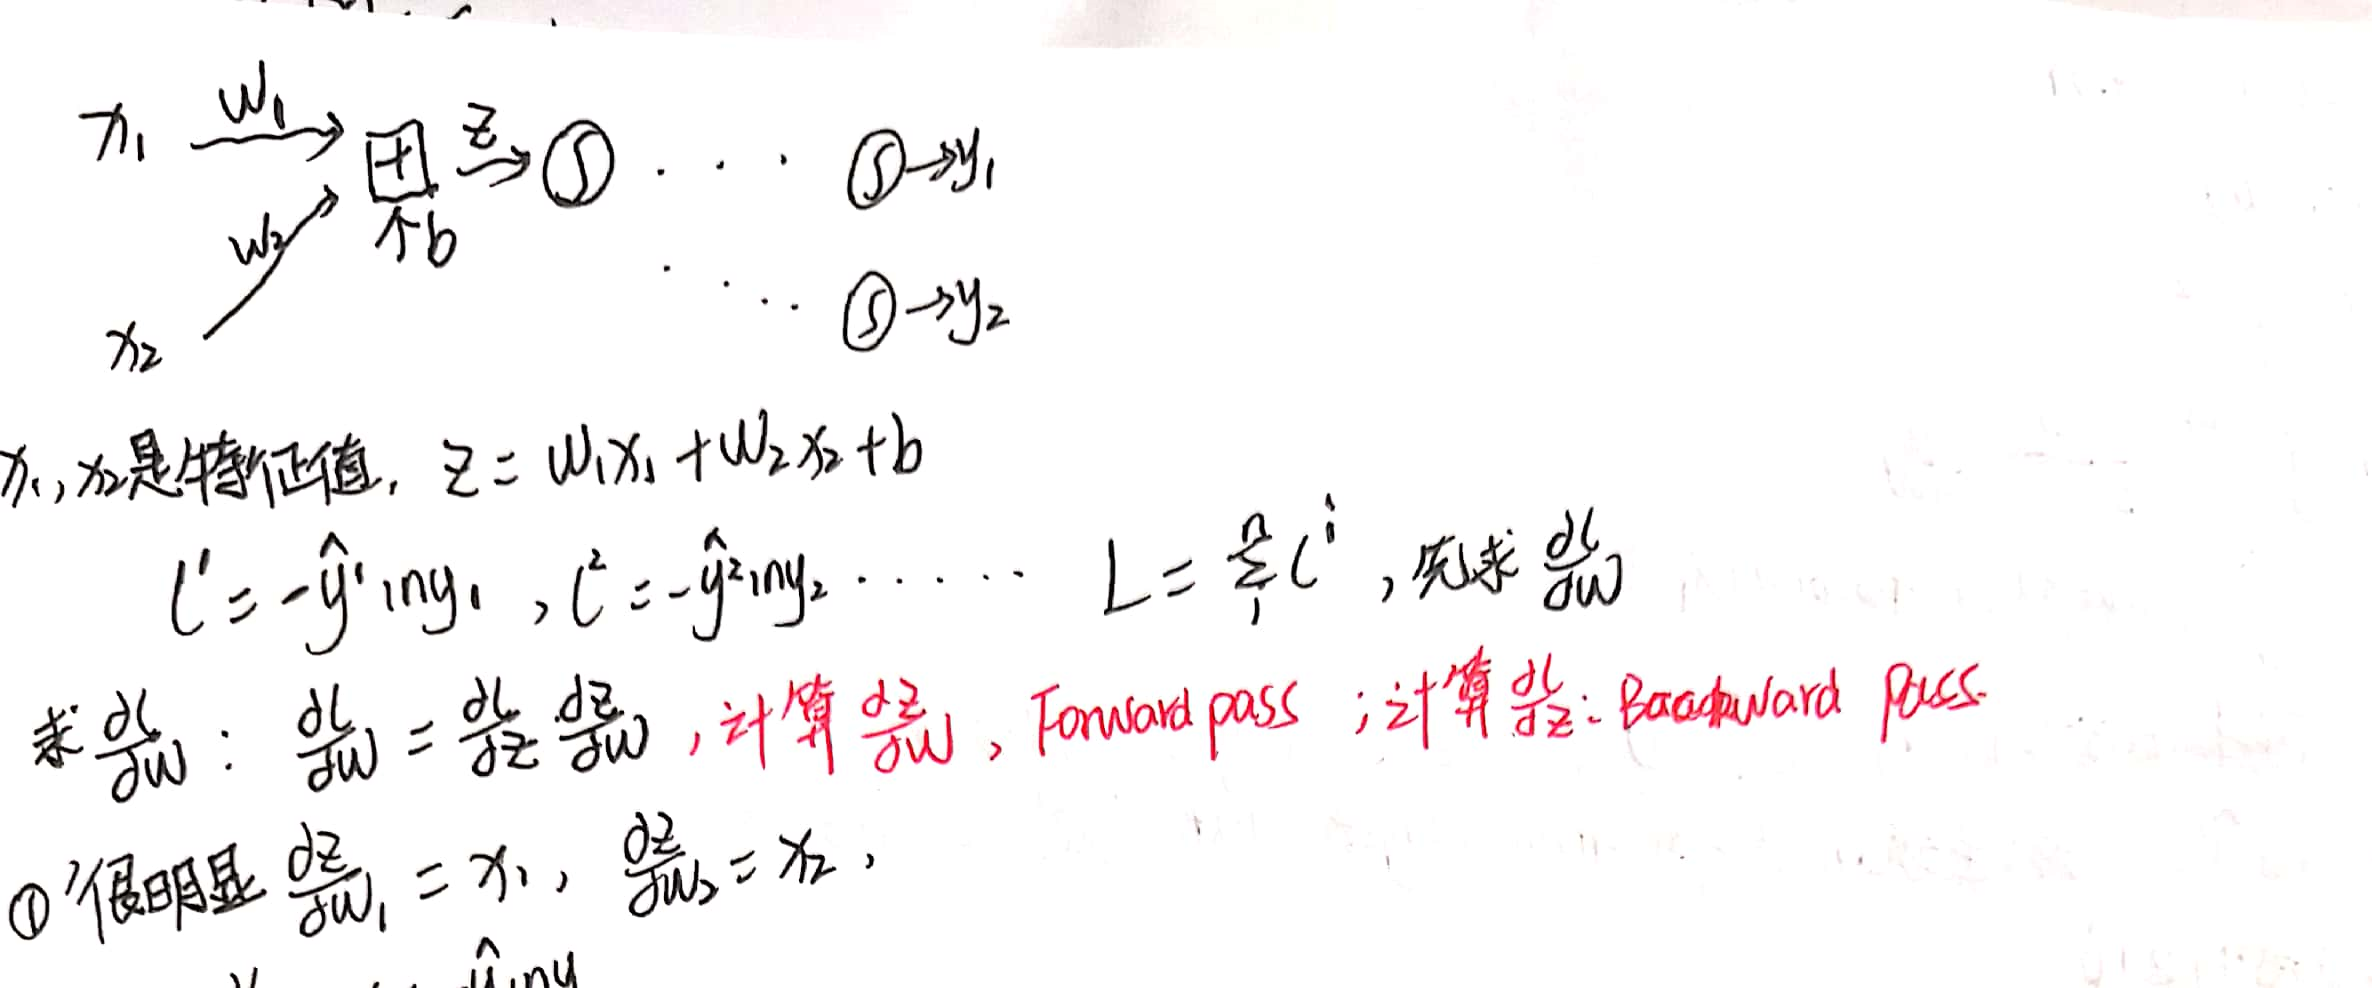 x₁ w₁ + z ∫ . . . ∫ → y₁
w₂ ↑b
x₂ . . . . ∫ → y₂
x₁, x₂是特征值, z = w₁x₁ + w₂x₂ + b
l¹ = -ŷ¹lny₁ , l² = -ŷ²lny₂ ...... L = Σ₁ⁿ lⁱ , 先求 ∂l/∂w
求 ∂l/∂w : ∂l/∂w = ∂l/∂z ∂z/∂w , 计算 ∂z/∂w , Forward pass ; 计算 ∂l/∂z : Backward pass.
① 很明显 ∂z/∂w₁ = x₁, ∂z/∂w₂ = x₂,